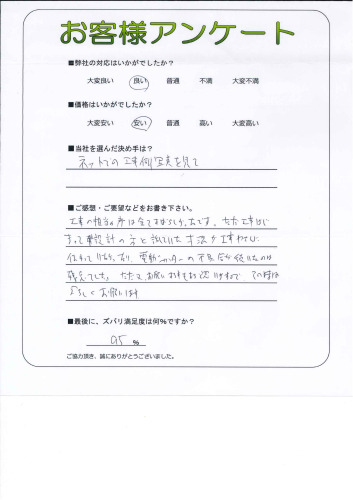 お客様アンケート
■弊社の対応はいかがでしたか?
大変良い 良い 普通 不満 大変不満
■価格はいかがでしたか?
大変安い 安い 普通 高い 大変高い
■当社を選んだ決め手は?
ネットでの工事例写真を見て
■ご感想・ご要望などをお書き下さい。
工事の担当の方は全てすばらしい方です。ただ工事は
設計の方と話していた寸法が工事の
電動シャッターの不具合が続いたのは
残念でした。
よろしくお願いします
■最後に、ズバリ満足度は何%ですか?
95 %
ご協力頂き、誠にありがとうございました。